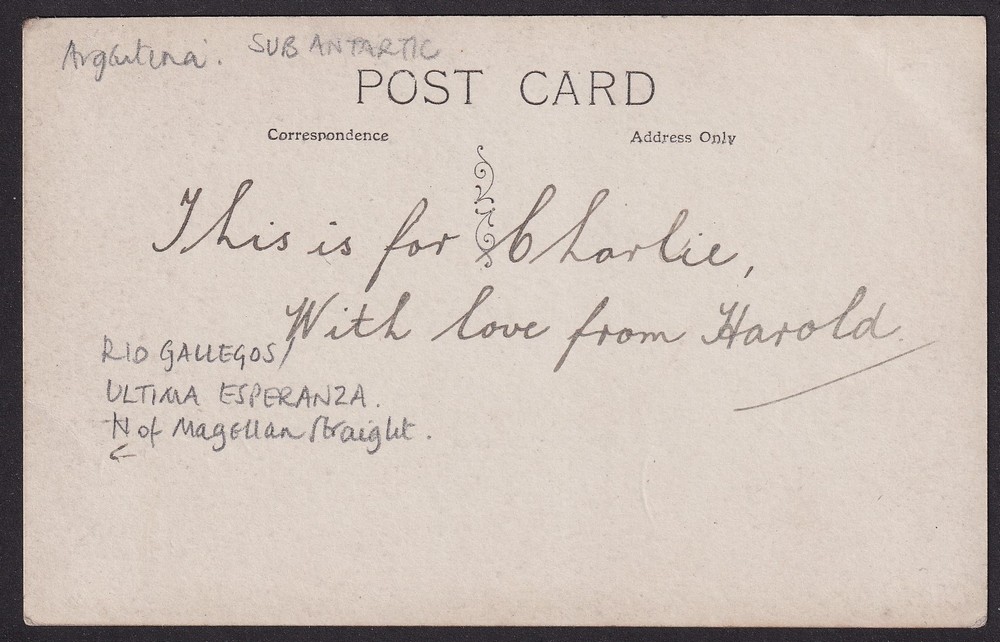 Argentina. SUB ANTARTIC
POST CARD
Correspondence
Address Only
This is for Charlie,
With love from Harold.
RIO GALLEGOS /
ULTIMA ESPERANZA.
N of Magellan Straight.